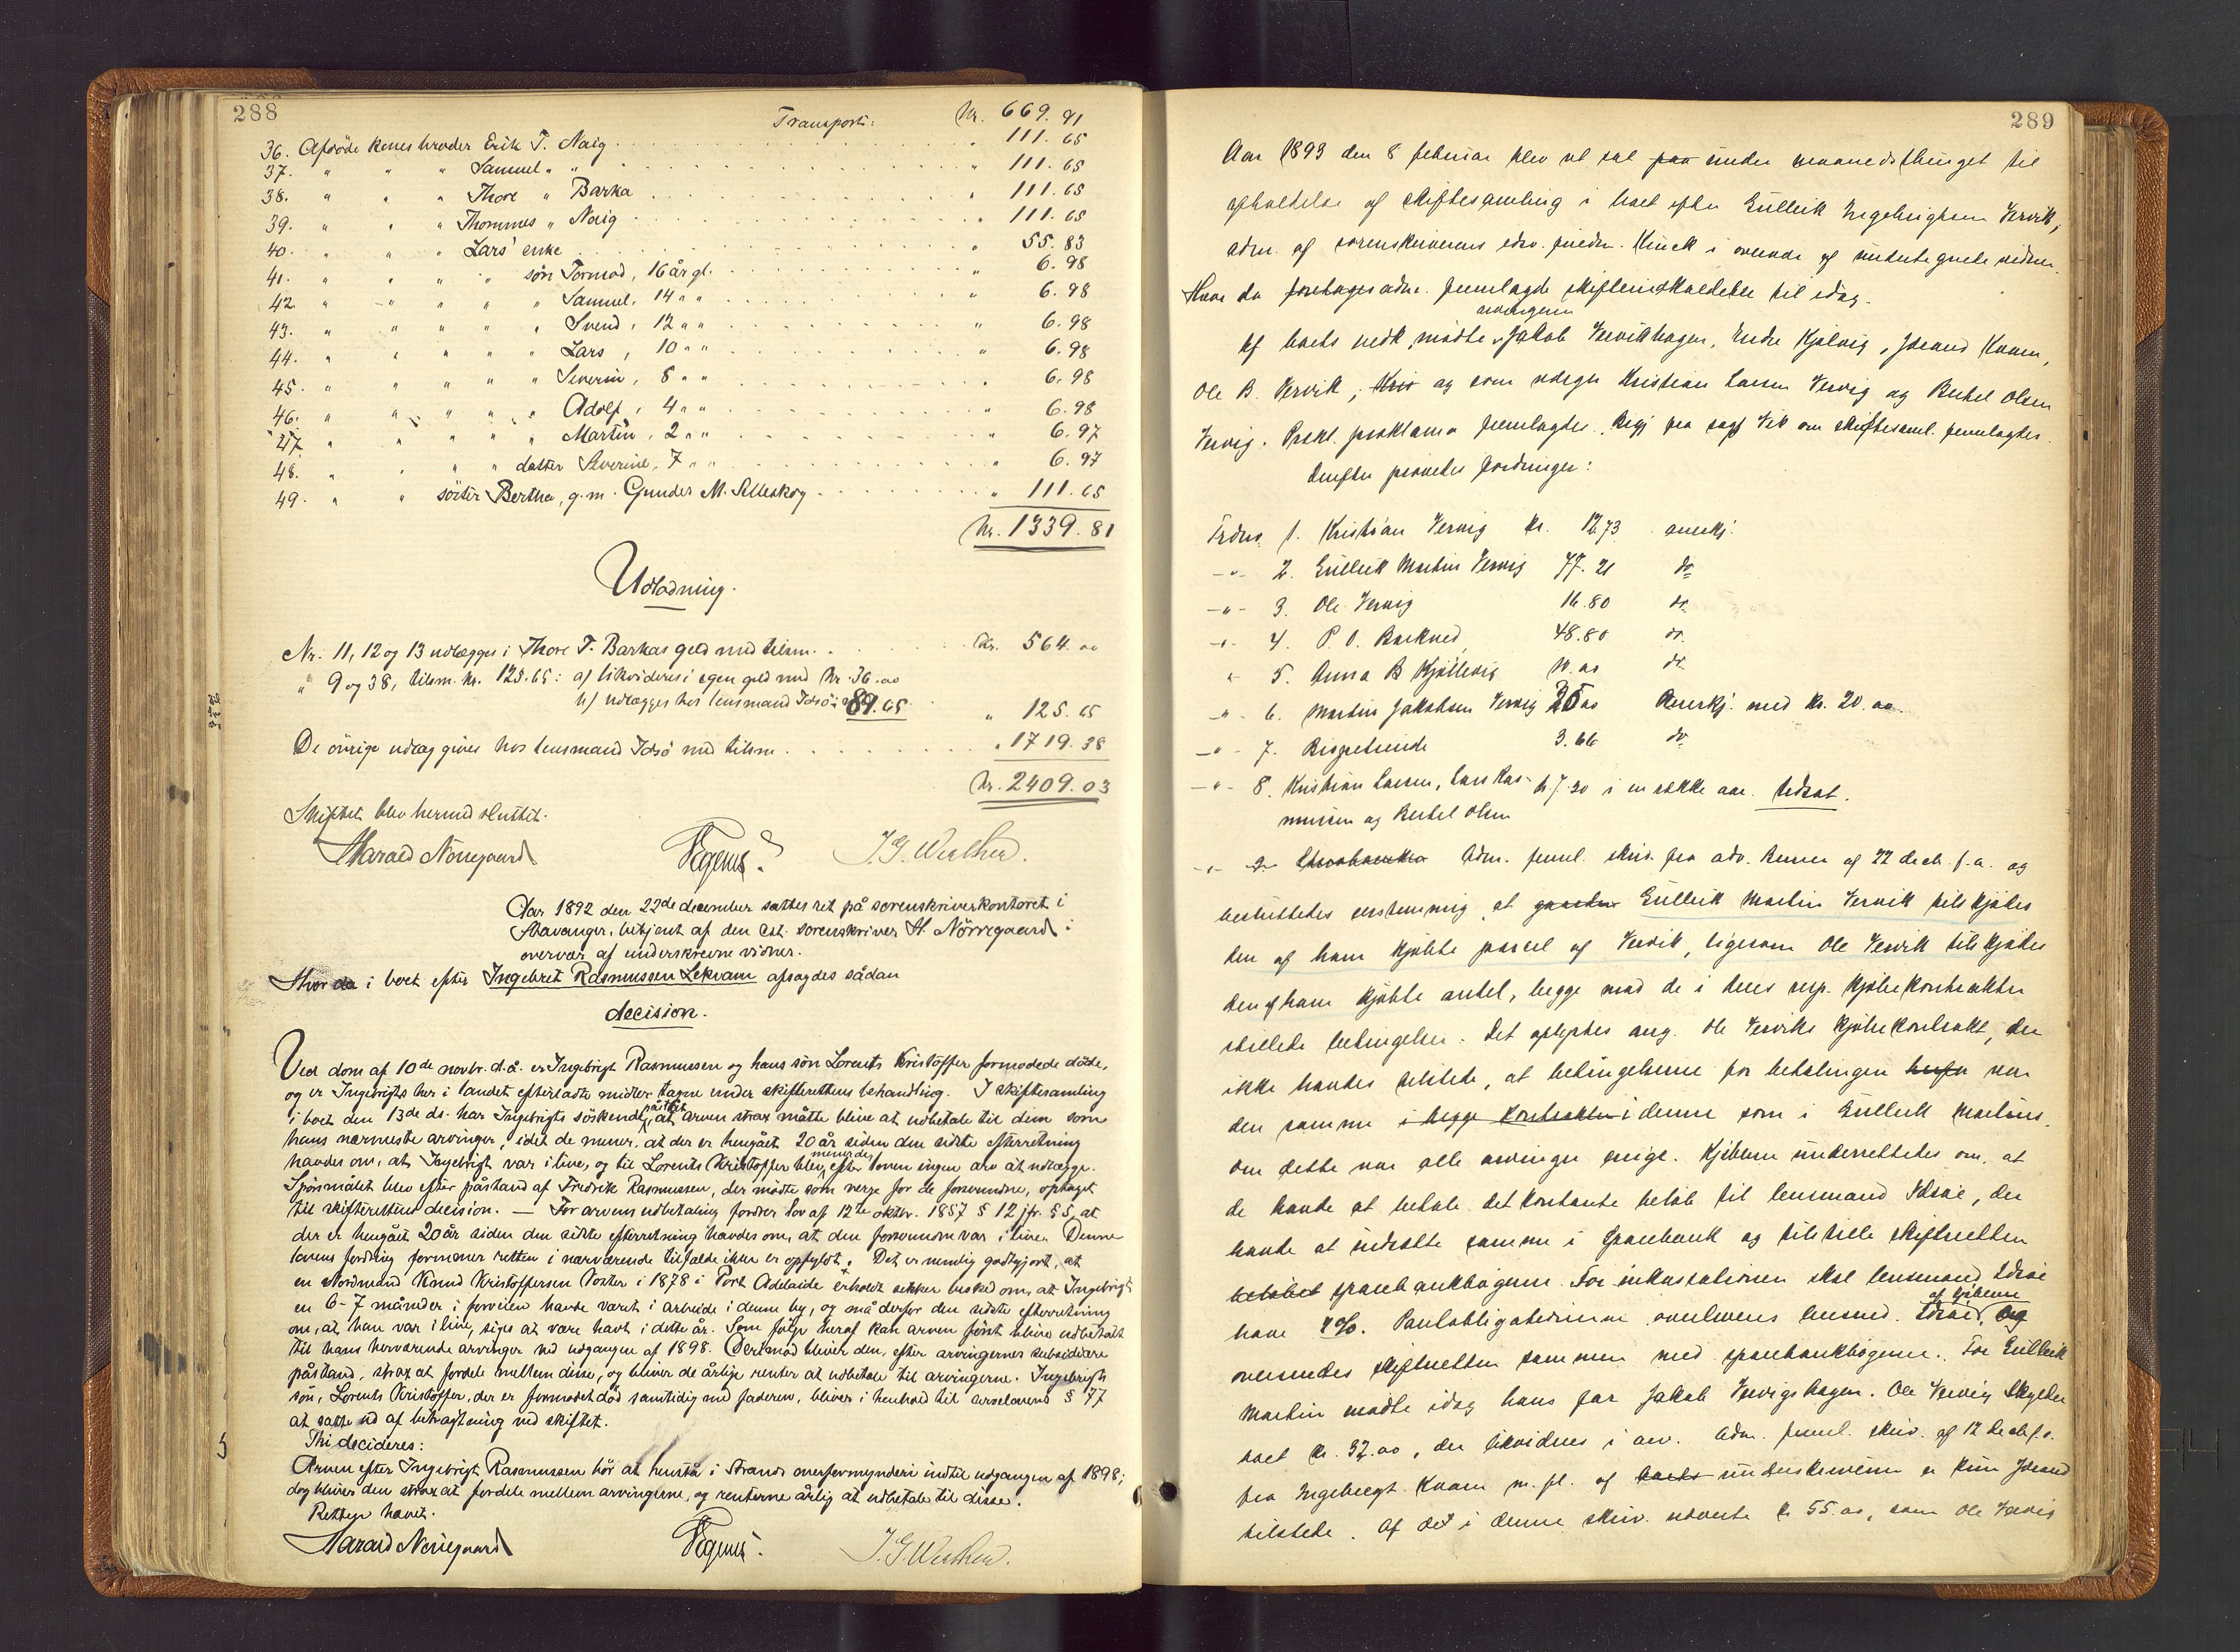 288
Transport: Kr. 669. 91
36. Afdöde kones broder Erik T. Naig . . . " 111. 65
37. " " " Samuel " " . . . " 111. 65
38. " " " Thore " Barka . . . " 111. 65
39. " " " Thommes " Naig . . . " 111. 65
40. " " " Lars' enke . . . " 55. 83
41. " " " " sön Tormod, 16 år gl. . . . " 6. 98
42. " " " " " Samuel, 14 " " . . . " 6. 98
43. " " " " " Svend, 12 " " . . . " 6. 98
44. " " " " " Lars, 10 " " . . . " 6. 98
45. " " " " " Severin, 8 " " . . . " 6. 98
46. " " " " " Adolf, 4 " " . . . " 6. 98
47. " " " " " Martin, 2 " " . . . " 6. 97
48. " " " " datter Severine, 7 " " . . . " 6. 97
49. " " söster Bertha, g. m. Gunder M. Selleskog . . . " 111. 65
Kr. 1339. 81
Udlodning.
Nr. 11, 12 og 13 udlægges i Thore T. Barkas geld med tilsm. . . Kr. 564. 00
" 9 og 38, tilsm. kr. 125. 65: a) likvideres i egen geld med Kr. 36. 00
b) udlægges hos lensmand Idsö " 89. 65 . . " 125. 65
De övrige udlæg gives hos lensmand Idsö med tilsm. . . . " 1719. 38
Kr. 2409. 03
Skiftet blev hermed sluttet.
Harald Nörregaard
J. G. Walther.
Aar 1892 den 22de december sattes ret på sorenskriverkontoret i
Stavanger, betjent af den cst. sorenskriver H. Nörregaard i
overvær af underskrevne vidner.
Hvor da i boet efter Ingebret Rasmussen Lekvam afsagdes sådan
decision.
Ved dom af 10de novbr. d. å. er Ingebrigt Rasmussen og hans sön Lorents Kristoffer formodede döde,
og er Ingebrigts her i landet efterladte midler tagne under skifterettens behandling. I skiftesamling
i boet den 13de ds. har Ingebrigts söskende påståt, at arven strax måtte blive at udbetale til dem som
hans nærmeste arvinger, idet de mener, at der er hengået 20 år siden den sidste efterretning
havdes om, at Ingebrigt var i live, og til Lorents Kristoffer blev, menes der, efter loven ingen arv at udlægge.
Spörsmålet blev efter påstand af Fredrik Rasmussen, der mödte som verge for de forsvundne, optaget
til skifterettens decision. — For arvens udbetaling fordrer lov af 12te oktbr. 1857 § 12 jfr. § 5, at
der er hengået 20 år siden den sidste efterretning havdes om, at den forsvundne var i live. Denne
lovens fordring formener retten i nærværende tilfælde ikke er opfyldt. Det er nemlig godtgjort, at
en Nordmand Knud Kristoffersen Voster i 1878 i Port Adelaide erholdt sikker besked om, at Ingebrigt
en 6-7 måneder i forveien havde været i arbeide i denne by, og må derfor den sidste efterretning
om, at han var i live, siges at være havt i dette år. Som fölge heraf kan arven först blive udbetalt
til hans herværende arvinger ved udgangen af 1898. Derimod bliver den, efter arvingernes subsidiære
påstand, strax at fordele mellem disse, og bliver de årlige renter at udbetale til arvingerne. Ingebrigts
sön, Lorents Kristoffer, der er formodet död samtidig med faderen, bliver i henhold til arvelovens § 77
at sætte ud af betragtning ved skiftet.
Thi decideres:
Arven efter Ingebrigt Rasmussen bör at henstå i Strands overformynderi indtil udgangen af 1898;
dog bliver den strax at fordele mellem arvingerne, og renterne årlig at udbetale til disse.
Retten hævet.
Harald Nörregaard
J. G. Walther.
289
Aar 1893 den 8 februar blev ret sat paa under maanedsthinget til
afholdelse af skiftesamling i boet efter Gullik Ingebrigtsen Vervik,
adm. af sorenskriverens edsv. fuldm. Kinck i overvær af undertegnede vidner.
Hvor da foretoges adm. fremlagde skifteindkaldelse til idag.
Af boets vedk. mödte arvingerne Jakob Vervikhagen, Endre Kjølvig, Josand Kvam,
Ole B. Vervik, Kris og som verger Kristian Larsen Vervig og Bertel Olsen
Vervig. Prokl. proklama fremlagdes. Begj fra sagf Vik om skiftesaml. fremlagdes.
Derefter prövedes fordringer:
Fordr. 1. Kristian Vervig kr. 12.73 anerkj.
-"- 2. Gullik Martin Vervig 77. 21 do
-"- 3. Ole Vervig 16.80 do.
-"- 4. P. O. Barkved 48.80 do.
" 5. Anna B Kjöllevig 10.00 do.
-"- 6. Martin Jakobsen Vervig 25.00 Anerkj. med kr. 20.00.
-"- 7. 3.66 do.
-"- 8. Kristian Larsen, Lars Rasmussen og Bertel Olsen kr. 7.20 i en række aar. Udsat.
-"- 9 Adm. freml. skriv. fra adv. af 22 decb. f. a. og
besluttedes enstemmig, at gaarden Gullik Martin Vervik tilskjödes
den af ham kjöbte parcel af Vervik, ligesom Ole Vervik tilskjödes
den af ham kjöbte andel, begge mod de i deres resp. kjöbekontrakter
stillede betingelser. Det oplystes ang. Ole Verviks kjöbekontrakt, der
ikke havdes tilstede, at betingelserne for betalingen var
den samme i begge kontrakter i denne som i Gullik Martins.
Om dette var alle arvinger enige. Kjöberne underrettedes om, at
de havde at betale det kontante belöb til lensmand Idsöe, der
havde at indsætte samme i Sparebank og tilstille skifteretten
belöbet sparebankbogen. For inkassationen skal lensmand Idsöe
have 4 %. Panteobligationerne overleveres lensmd. Idsöe af kjöberne og
oversendes skifteretten sammen med sparebankbogen. For Gullik
Martin mödte idag hans far Jakob Vervigshagen. Ole Vervig skylder
boet kr. 32.00, der likvideres i arv. Adm. freml. skriv. af 12 decb. f. a.
fra Ingebregt Kvam m. fl. af underskriverne er kun Josand
tilstede. Af det i denne skriv. nævnte kr 55.00, som Ole Vervig